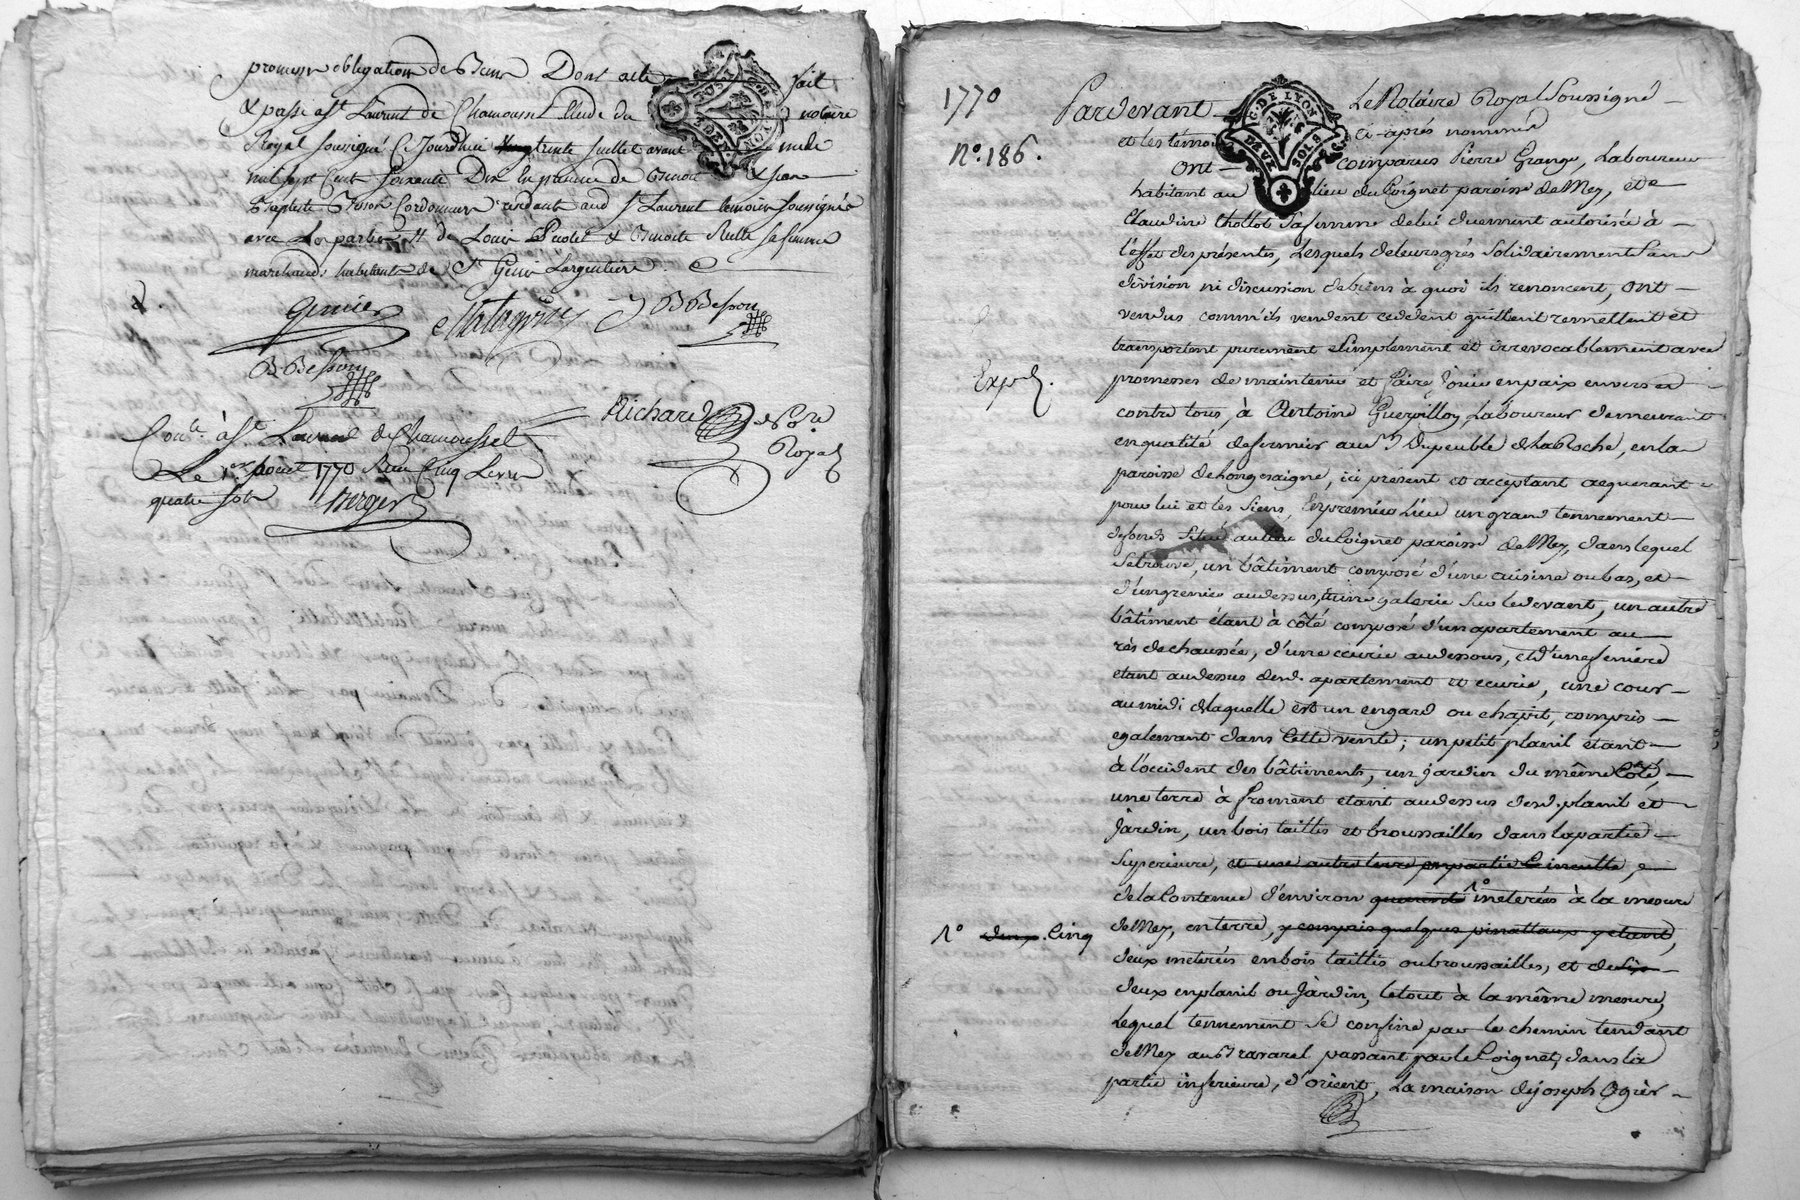 promesse obligation de Biens Dont acte fait
& passé a St Laurent de Chamousset Etude du notaire
Royal soussigné Ce Jourdhui trente Juillet avant midi
mil sept Cent soixante Dix En présence de & Jean
Baptiste Cordonnier résidants aud St Laurent témoins soussignés
avec Les parties de Louis & Benoite sa femme
marchands habitants de St Genis Largentiere
Grenier
B Besson
B Besson
Richard
No.re
Royal
Con.lé à St Laurent de Chamousset
Le 1er aout 1770 Reçu Cinq Livres
quatre sols
Berger
1770
N.º 186.
G. DE LYON
DEUX SOLS
Pardevant Le Notaire Royal Soussigné
et les témoins ci-après nommés
ont comparus Pierre Grange, Laboureur
habitant au lieu du Poignet paroisse de Mey, et
Claudine thollot Sa femme de lui duement autorisée à
l'effet des présentes, Lesquels de leurs grés Solidairement Sans
division ni discussion de biens à quoi ils renoncent, ont
vendus comm'ils vendent cedent quittent remettent et
transportent purement et simplement et irrevocablement avec
promesses de maintenir et faire Jouir en paix envers et
Exp.
contre tous, à Antoine Guerpillon, Laboureur demeurant
en qualité de fermier au Sr Dupeuble de la Roche, en la
paroisse de Longesaigne, ici present et acceptant acquerant
pour lui et les Siens, En premier Lieu un grand tennement
de fonds Situé au lieu du Poignet paroisse de Mey, dans lequel
Se trouve, un bâtiment composé d'une cuisine au bas, et
d'un grenier au dessus, une galerie Sur le devant, un autre
bâtiment étant à côté composé d'un apartement au
rès de chaussée, d'une écurie au dessous, et d'une feniere
etant au dessus desd. apartement et écurie, une cour
au midi de laquelle est un engard ou chapit, compris
egalement dans Cette vente; un petit planil étant
à l'occident des bâtiments, un jardin du même Côté,
une terre à froment étant au dessus desd. planil et
Jardin, un bois taillis et broussailles dans la partie
Superieure, et une autre terre en partie inculte,
de la Contenue d'environ quarante 1º meterées à la mesure
1º deux. Cinq
de Mey, en terre, y compris quelques pinattaux y étant,
deux meterées en bois taillis ou broussailles, et de
deux en planil ou Jardin, le tout à la même mesure,
Lequel tennement Se confine par le chemin tendant
de Mey au Travarel passant par le Poignet, dans la
partie inferieure, d'orient, La maison de joseph Ogier